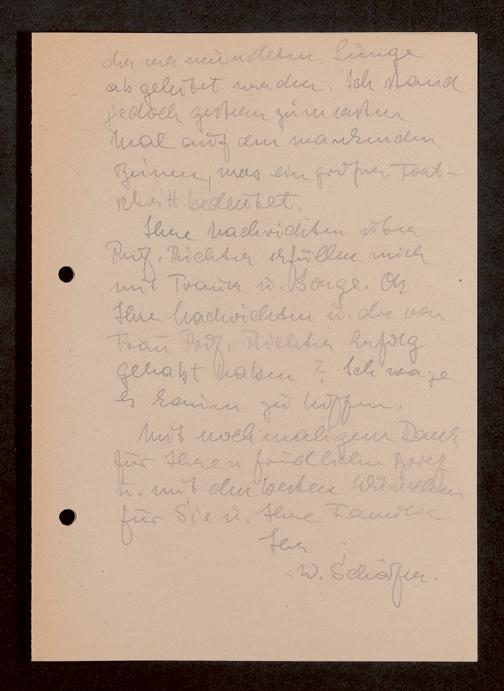 der verwundeten Lunge
abgehütet werden. Ich stand
jedoch gestern zum ersten
Mal auf den wankenden
Beinen, was ein großer Fort-
schritt bedeutet.
Ihre Nachrichten über
Prof. Richter erfüllen mich
mit Trauer u. Sorge. Ob
Ihre Nachrichten u. die von
Frau Prof. Richter Erfolg
gehabt haben? Ich wage
es kaum zu hoffen.
Mit nochmaligem Dank
für Ihren freundlichen Brief
u. mit den besten Wünschen
für Sie u. Ihre Familie
Ihr
W. Schäfer.